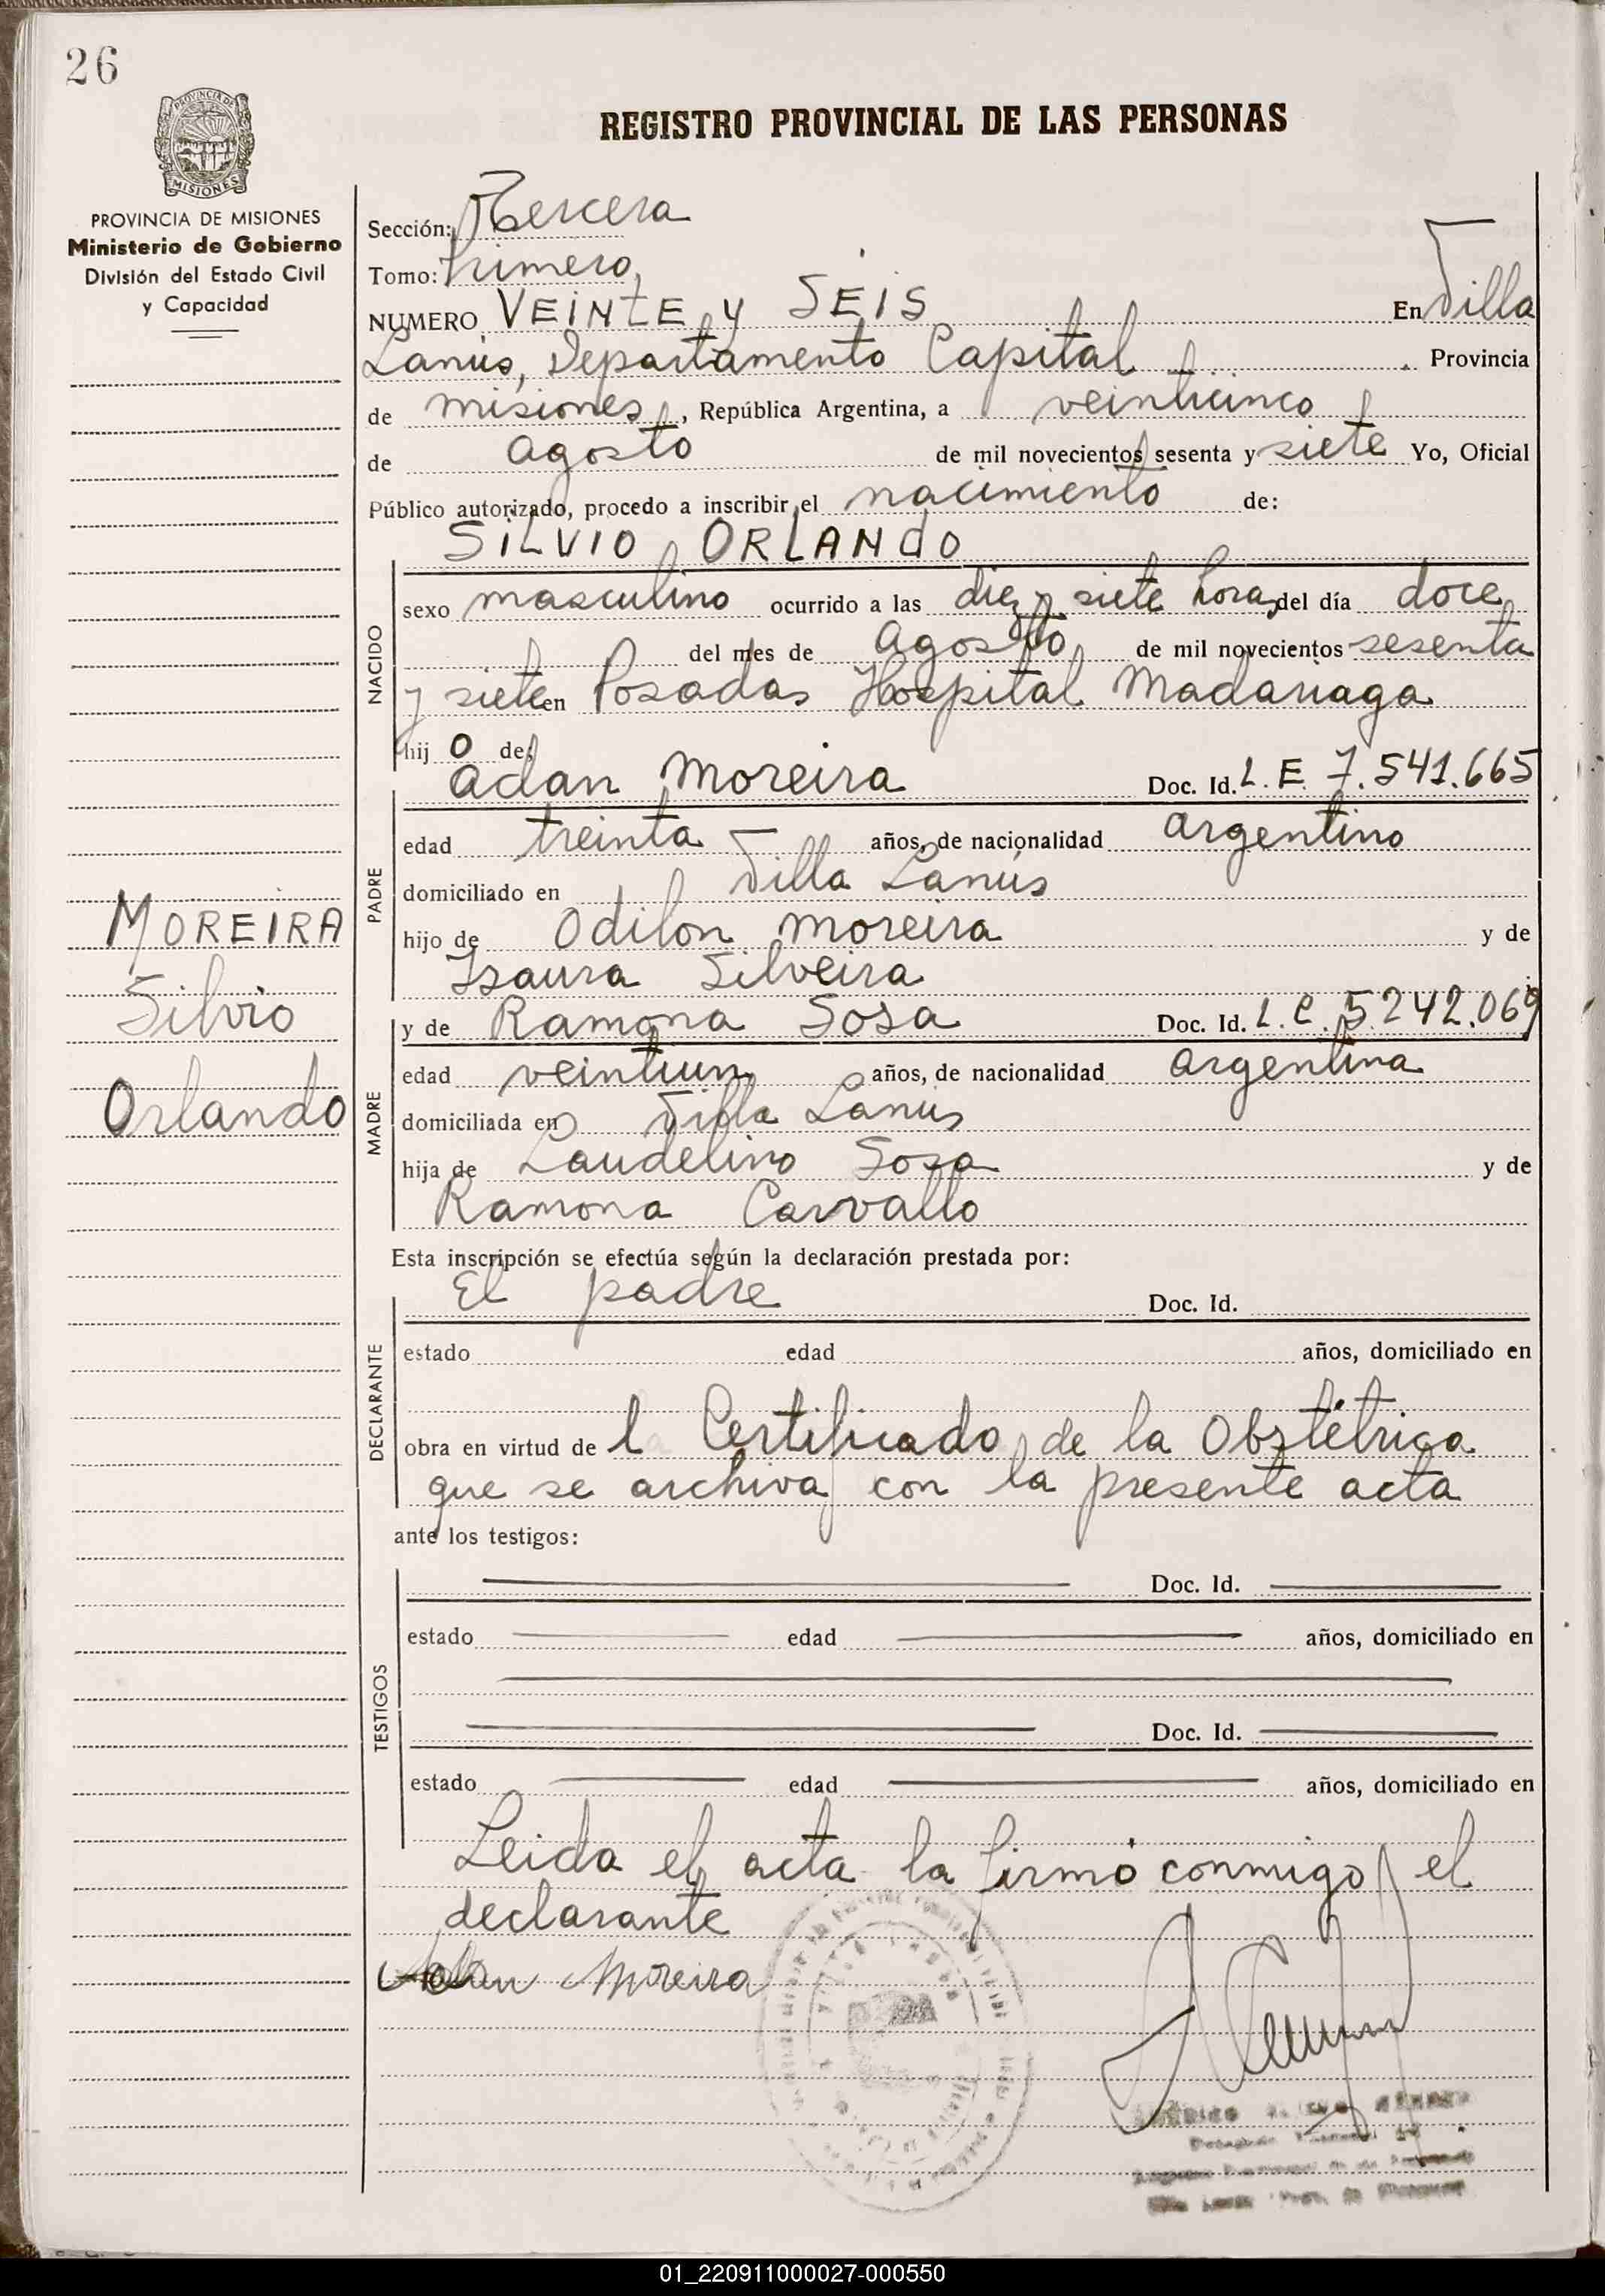 26
PROVINCIA DE
MISIONES
REGISTRO PROVINCIAL DE LAS PERSONAS
PROVINCIA DE MISIONES
Ministerio de Gobierno
División del Estado Civil
y Capacidad
Sección: Tercera
Tomo: Primero
NUMERO VEINTE Y SEIS En Villa
Lanús, Departamento Capital Provincia
de misiones, República Argentina, a veinticinco
de agosto de mil novecientos sesenta y siete Yo, Oficial
Público autorizado, procedo a inscribir el nacimiento de:
SILVIO ORLANDO
NACIDO
sexo masculino ocurrido a las diez y siete horas del día doce
del mes de agosto de mil novecientos sesenta
y siete en Posadas Hospital Madariaga
hij o de:
Adan Moreira Doc. Id. L. E. 7.541.665
PADRE
edad treinta años, de nacionalidad argentino
domiciliado en Villa Lanús
hijo de Odilon Moreira y de
Isaura Silveira
MOREIRA
Silvio
Orlando
y de Ramona Sosa Doc. Id. L. C. 5.242.069
MADRE
edad veintiun años, de nacionalidad argentina
domiciliada en Villa Lanús
hija de Laudelino Sosa y de
Ramona Carvallo
Esta inscripción se efectúa según la declaración prestada por:
El padre Doc. Id.
DECLARANTE
estado edad años, domiciliado en
obra en virtud de l Certificado de la Obstétrica
que se archiva con la presente acta
ante los testigos:
TESTIGOS
Doc. Id.
estado edad años, domiciliado en
Doc. Id.
estado edad años, domiciliado en
Leida el acta la firmó conmigo el
declarante
Adan Moreira
01_220911000027-000550